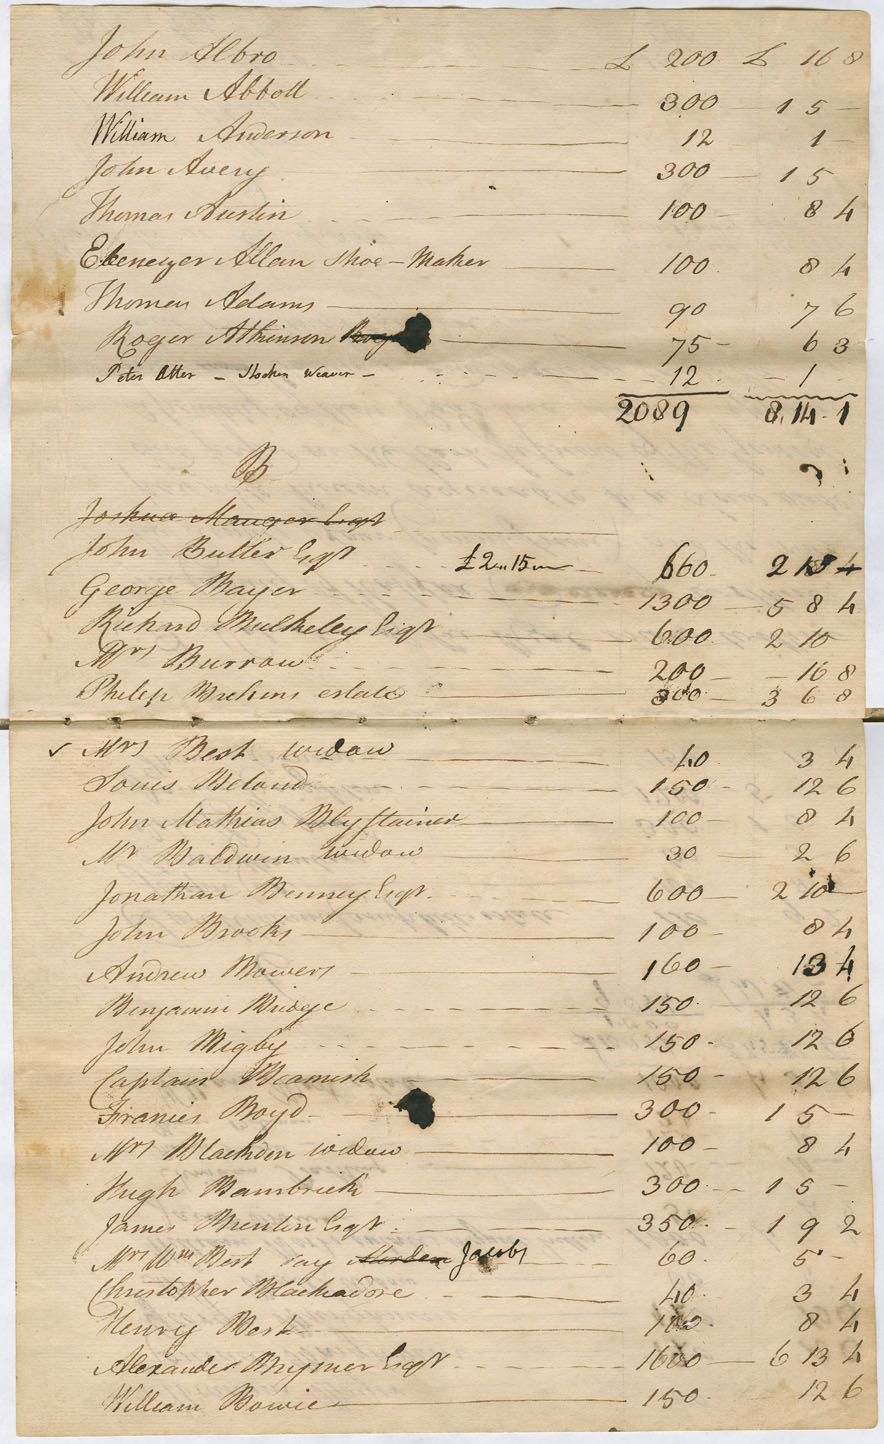 John Albro £ 200 £ 16 8
William Abbott 300 1 5 —
William Anderson 12 1 —
John Avery 300 1 5
Thomas Austin 100 8 4
Ebenezer Allan Shoe-Maker 100 8 4
Thomas Adams 90 7 6
Roger Atkinson 75 6 3
Peter Atter - Stocken Weaver 12 1
2089 8. 14. 1
B
Joshua Mauger Esqr
John Butler Esqr £2 " 15 " — 660 2 15
George Bayer 1300 5 8 4
Richard Bulkeley Esqr 600 2 10
Mrs Burrow 200 16 8
Philip estate 800 3 6 8
✓ Mrs Best widow 40 3 4
Louis Beloud 150 12 6
John Mathias Blystainer 100 8 4
Mr Baldwin widow 30 2 6
Jonathan Benney Esqr. 600 2 10 —
John Brooks 100 8 4
Andrew Bowers 160 13 4
Benjamin Bridge 150 12 6
John Bigby 150 12 6
Captain Beamish 150 12 6
Francis Boyd 300 1 5 —
Mrs Blackden widow 100 8 4
Hugh Bambrick 300 1 5 —
James Brenton Esqr. 350 1 9 2
Mrs Wm Best say Jacobs 60 5 —
Christopher Blackadore 40 3 4
Henry Best 100 8 4
Alexander Brymer Esqr 1600 6 13 4
William Bowie 150 12 6